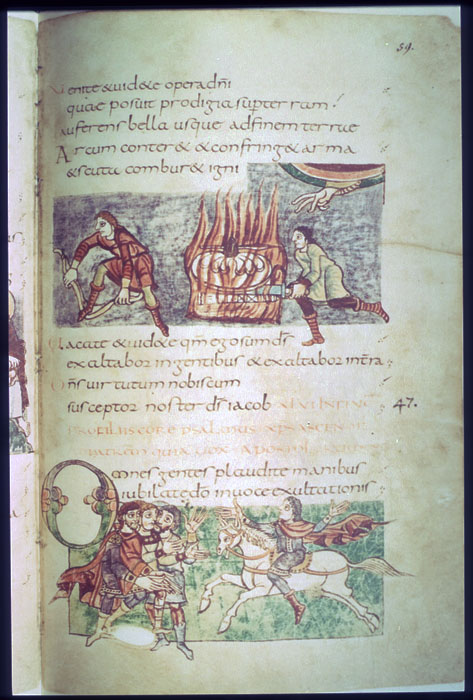 59.
Venite & uid&e opera dn̄i
quae posuit prodigia sup̄ter ram
auferens bella usque adfinem terrae
Arcum conter& & confring& arma
& scuta combur& igni
Uacate & uid&e qm̄ egosum ds̄
exaltabor ingentibus & exaltabor int̄ra
Dn̄s uirtutum nobiscum
susceptor noster ds̄ iacob
47.
Omnes gentes plaudite manibus
iubilate dō inuoce exultationis